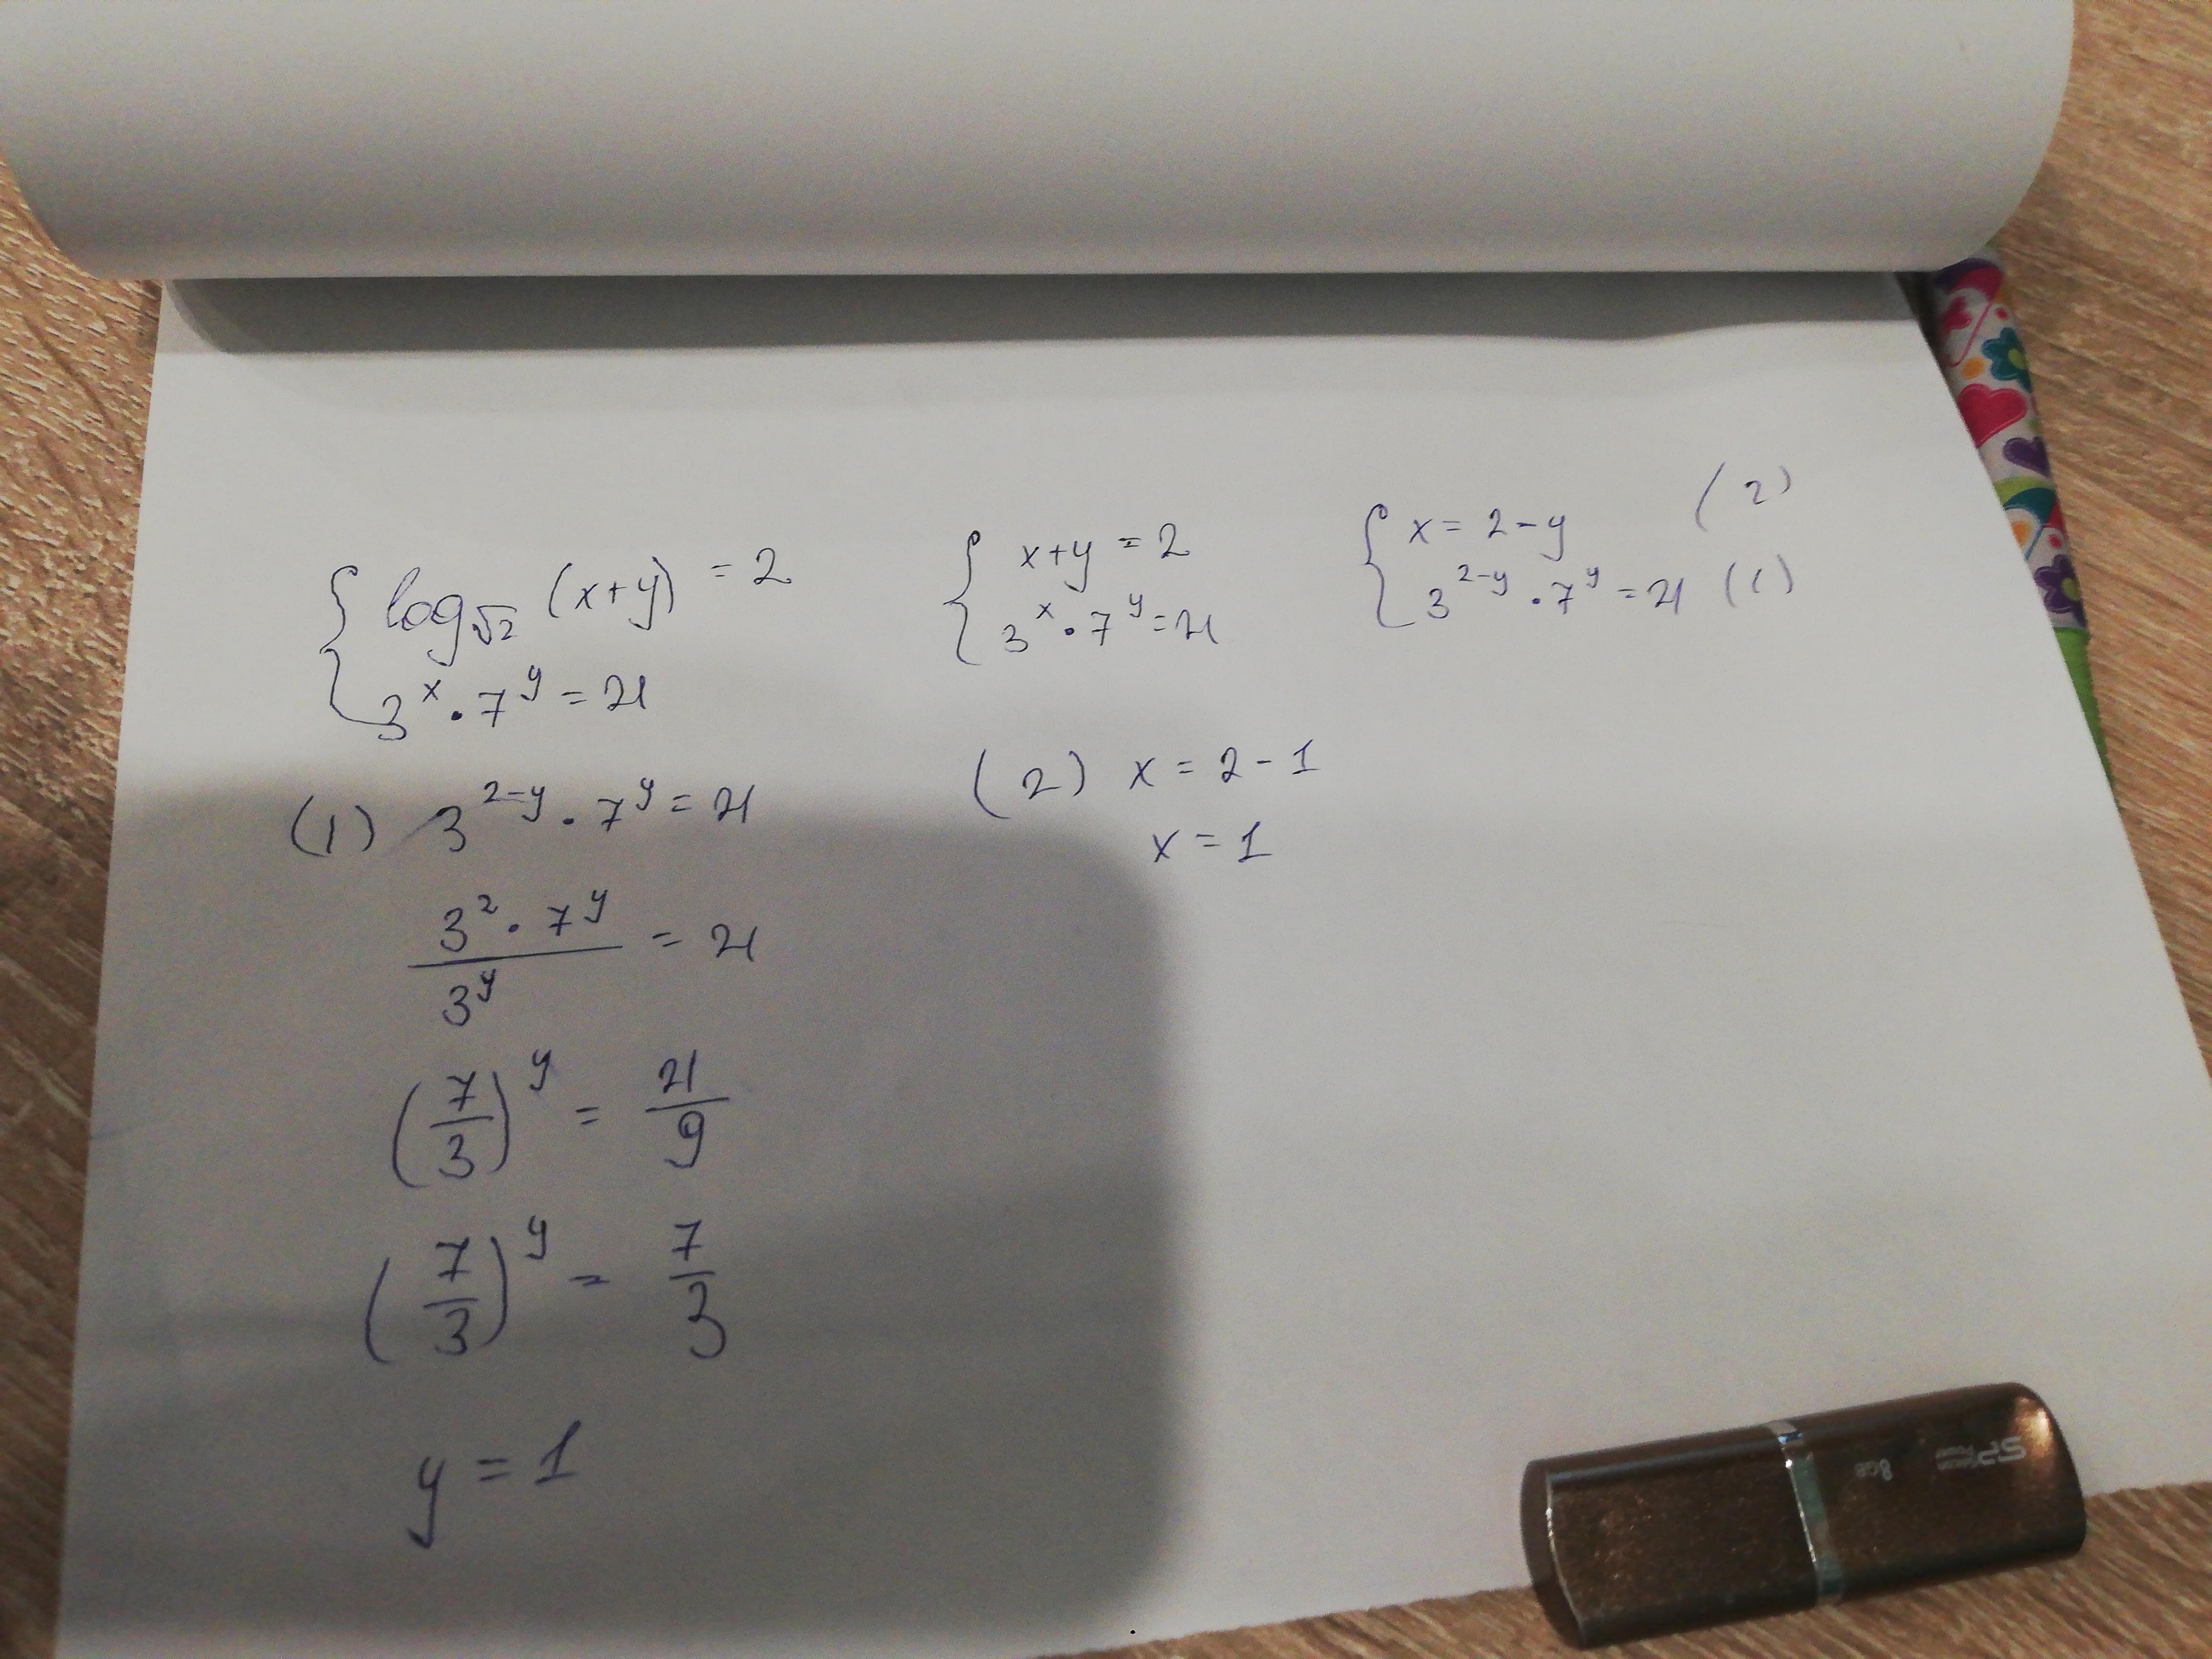 { log√2 (x+y) = 2
3^x · 7^y = 21
{ x+y = 2
3^x · 7^y = 21
{ x = 2-y (2)
3^(2-y) · 7^y = 21 (1)
(1) 3^(2-y) · 7^y = 21
(3^2 · 7^y)/3^y = 21
(7/3)^y = 21/9
(7/3)^y = 7/3
y = 1
(2) x = 2 - 1
x = 1
SP Silicon Power
8GB